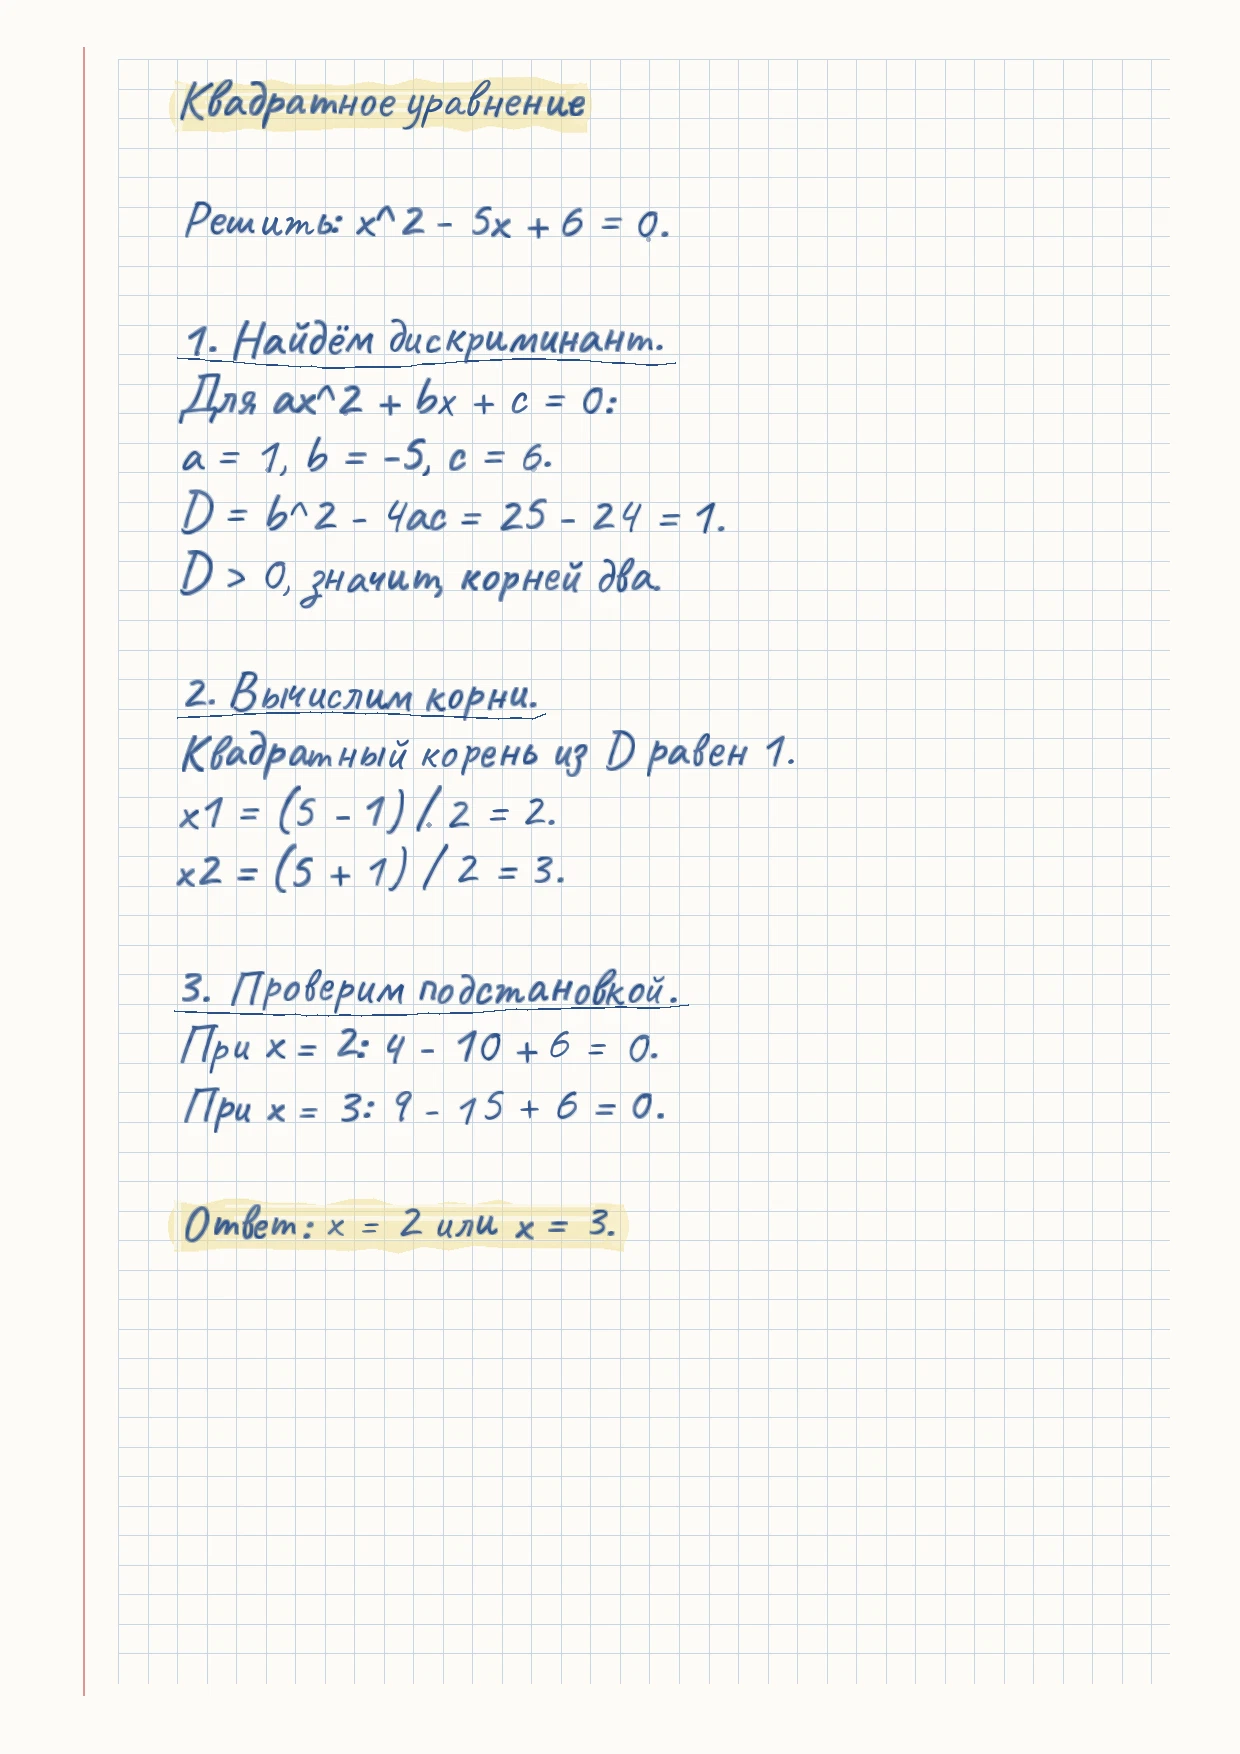 Квадратное уравнение
Решить: x^2 - 5x + 6 = 0.
1. Найдём дискриминант.
Для ax^2 + bx + c = 0:
a = 1, b = -5, c = 6.
D = b^2 - 4ac = 25 - 24 = 1.
D > 0, значит, корней два.
2. Вычислим корни.
Квадратный корень из D равен 1.
x1 = (5 - 1) / 2 = 2.
x2 = (5 + 1) / 2 = 3.
3. Проверим подстановкой.
При x = 2: 4 - 10 + 6 = 0.
При x = 3: 9 - 15 + 6 = 0.
Ответ: x = 2 или x = 3.